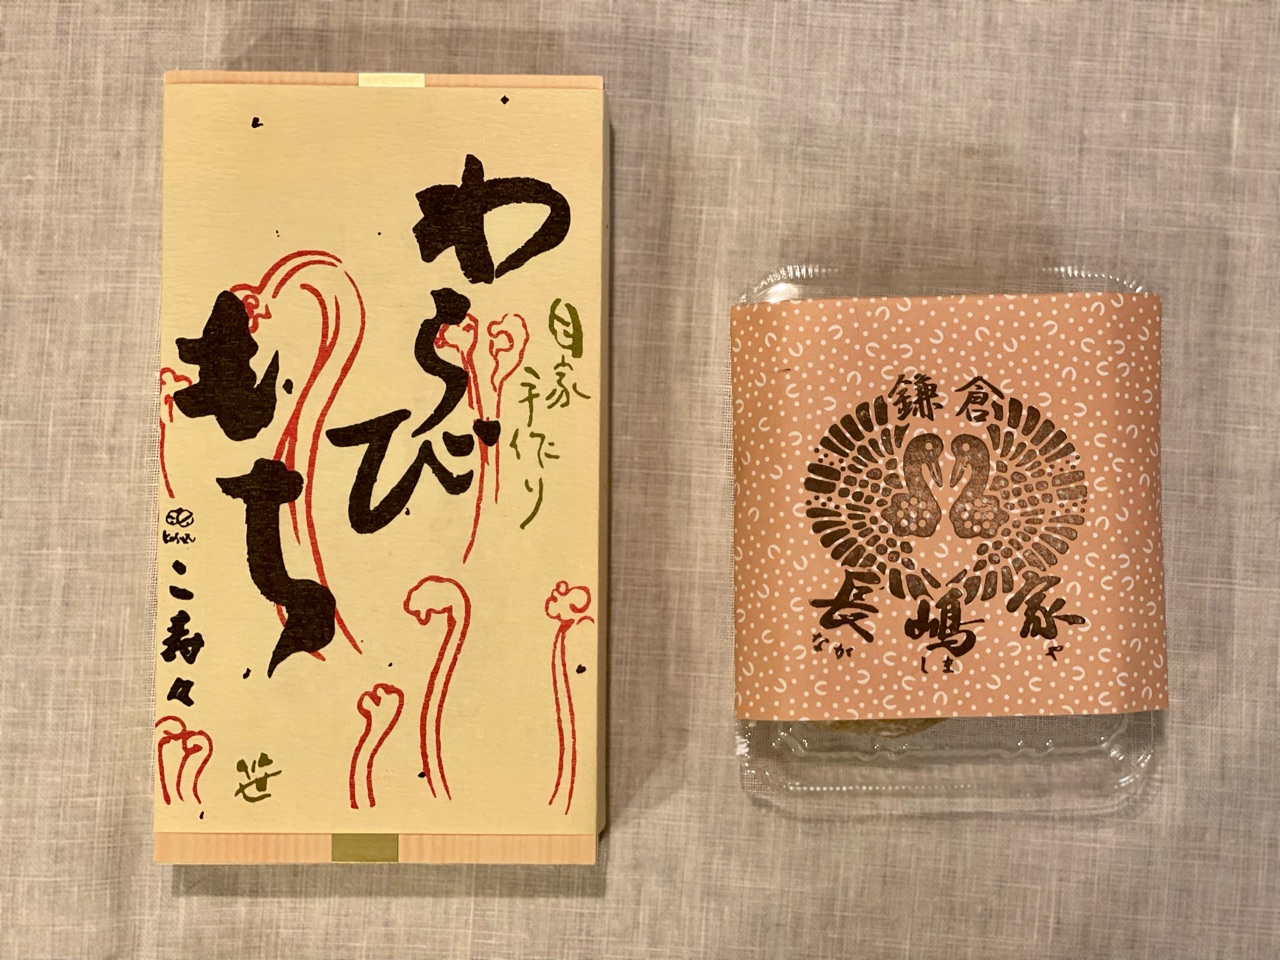 わらび
もち
自家
手作り
こ寿々
笹
鎌倉
長嶋家
ながしまや